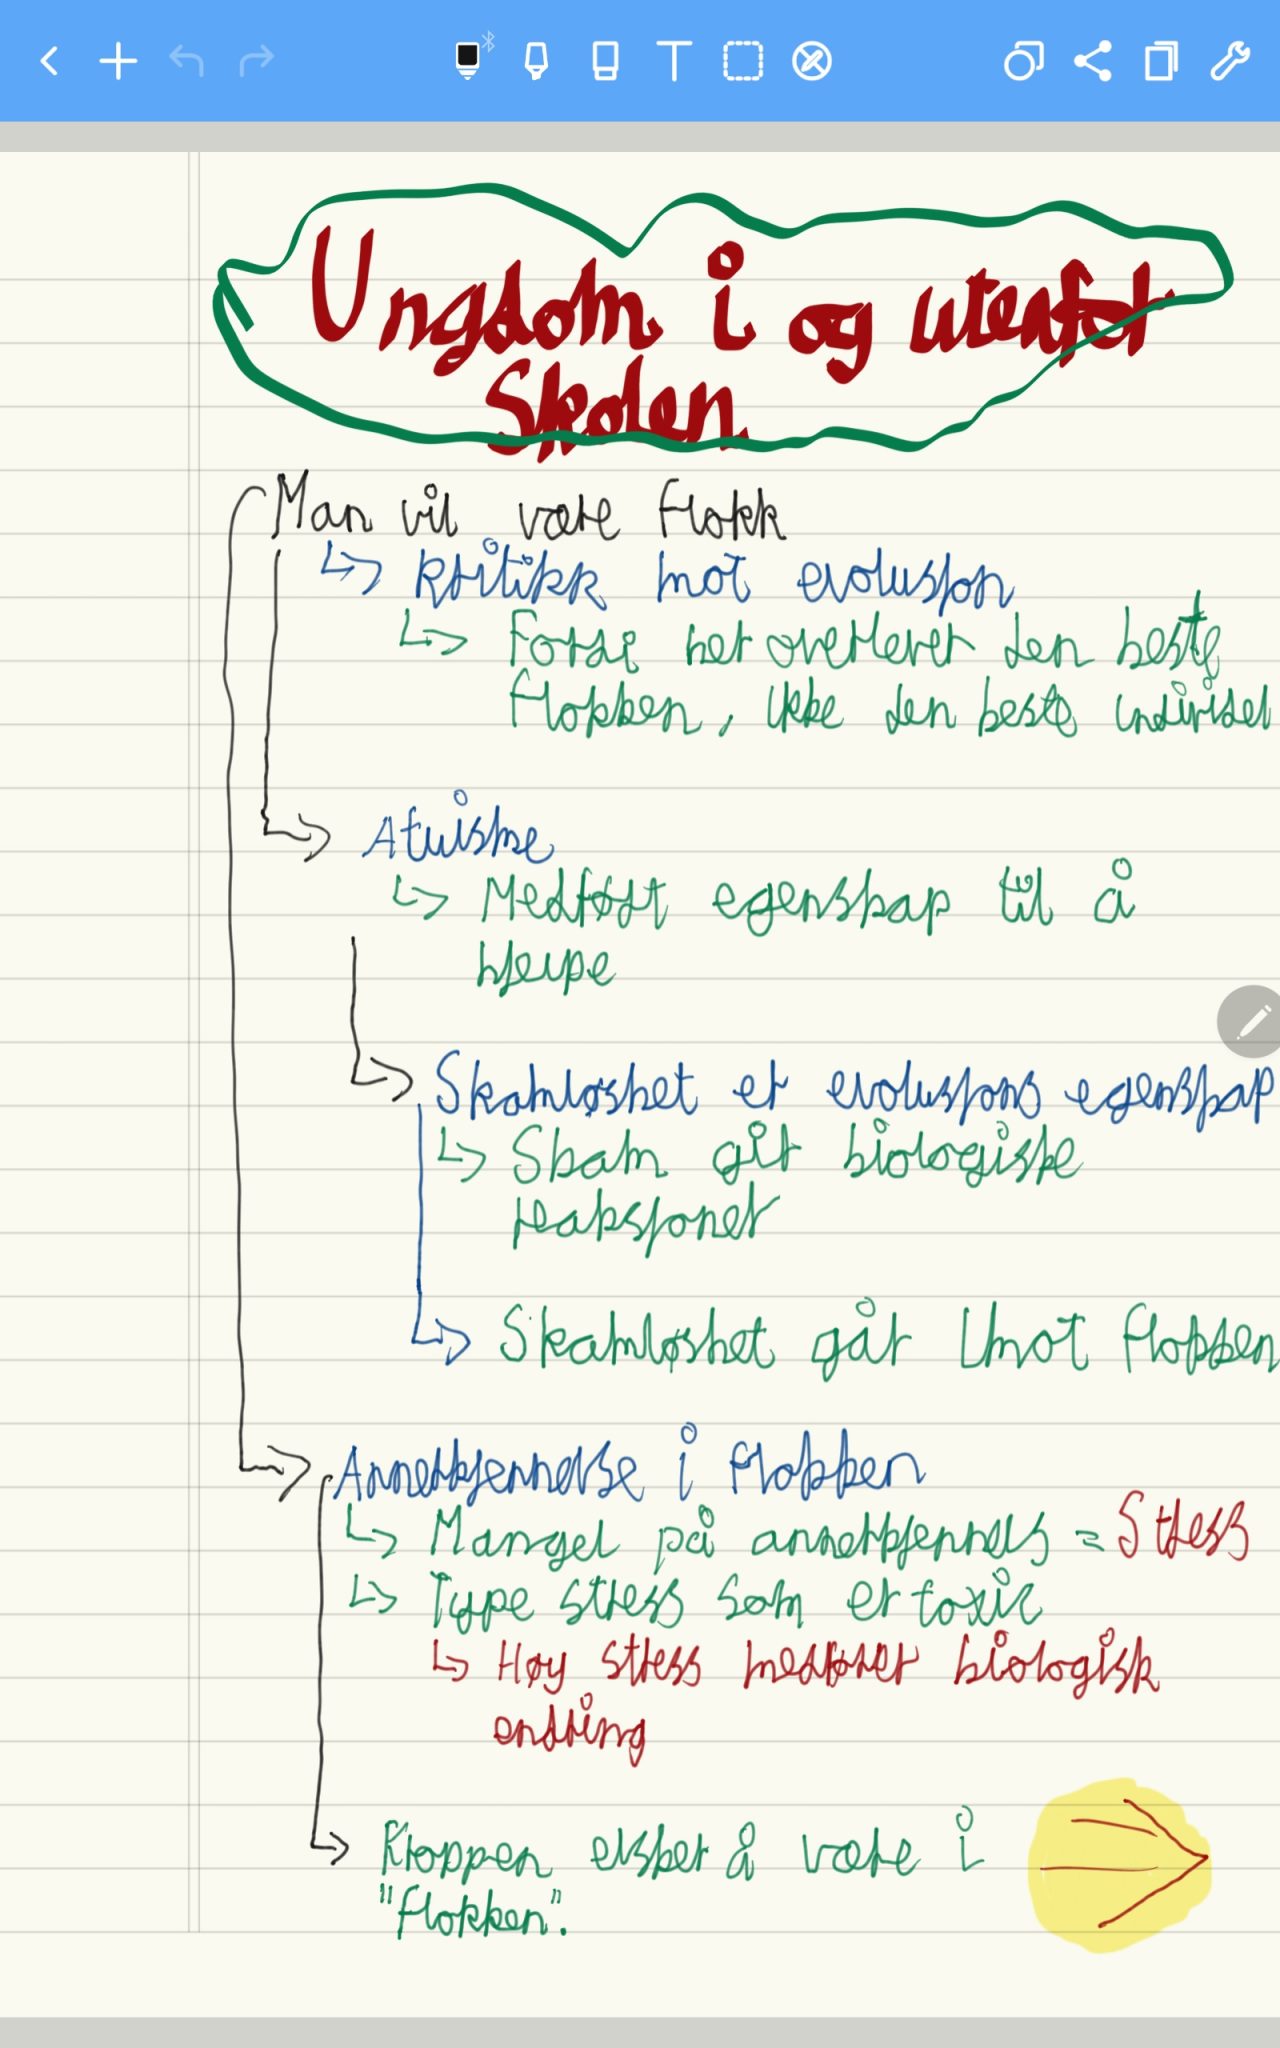 Ungdom i og utenfor
Skolen
Man vil være flokk
kritikk mot evolusjon
Fordi her overlever den beste
flokken, ikke den beste individet
Atuisme
Medfødt egenskap til å
hjelpe
Skamløshet er evolusjons egenskap
Skam gir biologiske
reaksjoner
Skamløshet går imot flokken
Annerkjennelse i flokken
Mangel på annerkjennels = Stress
Type stress som er toxic
Høy stress medfører biologisk
endring
Kroppen elsker å være i
"flokken".